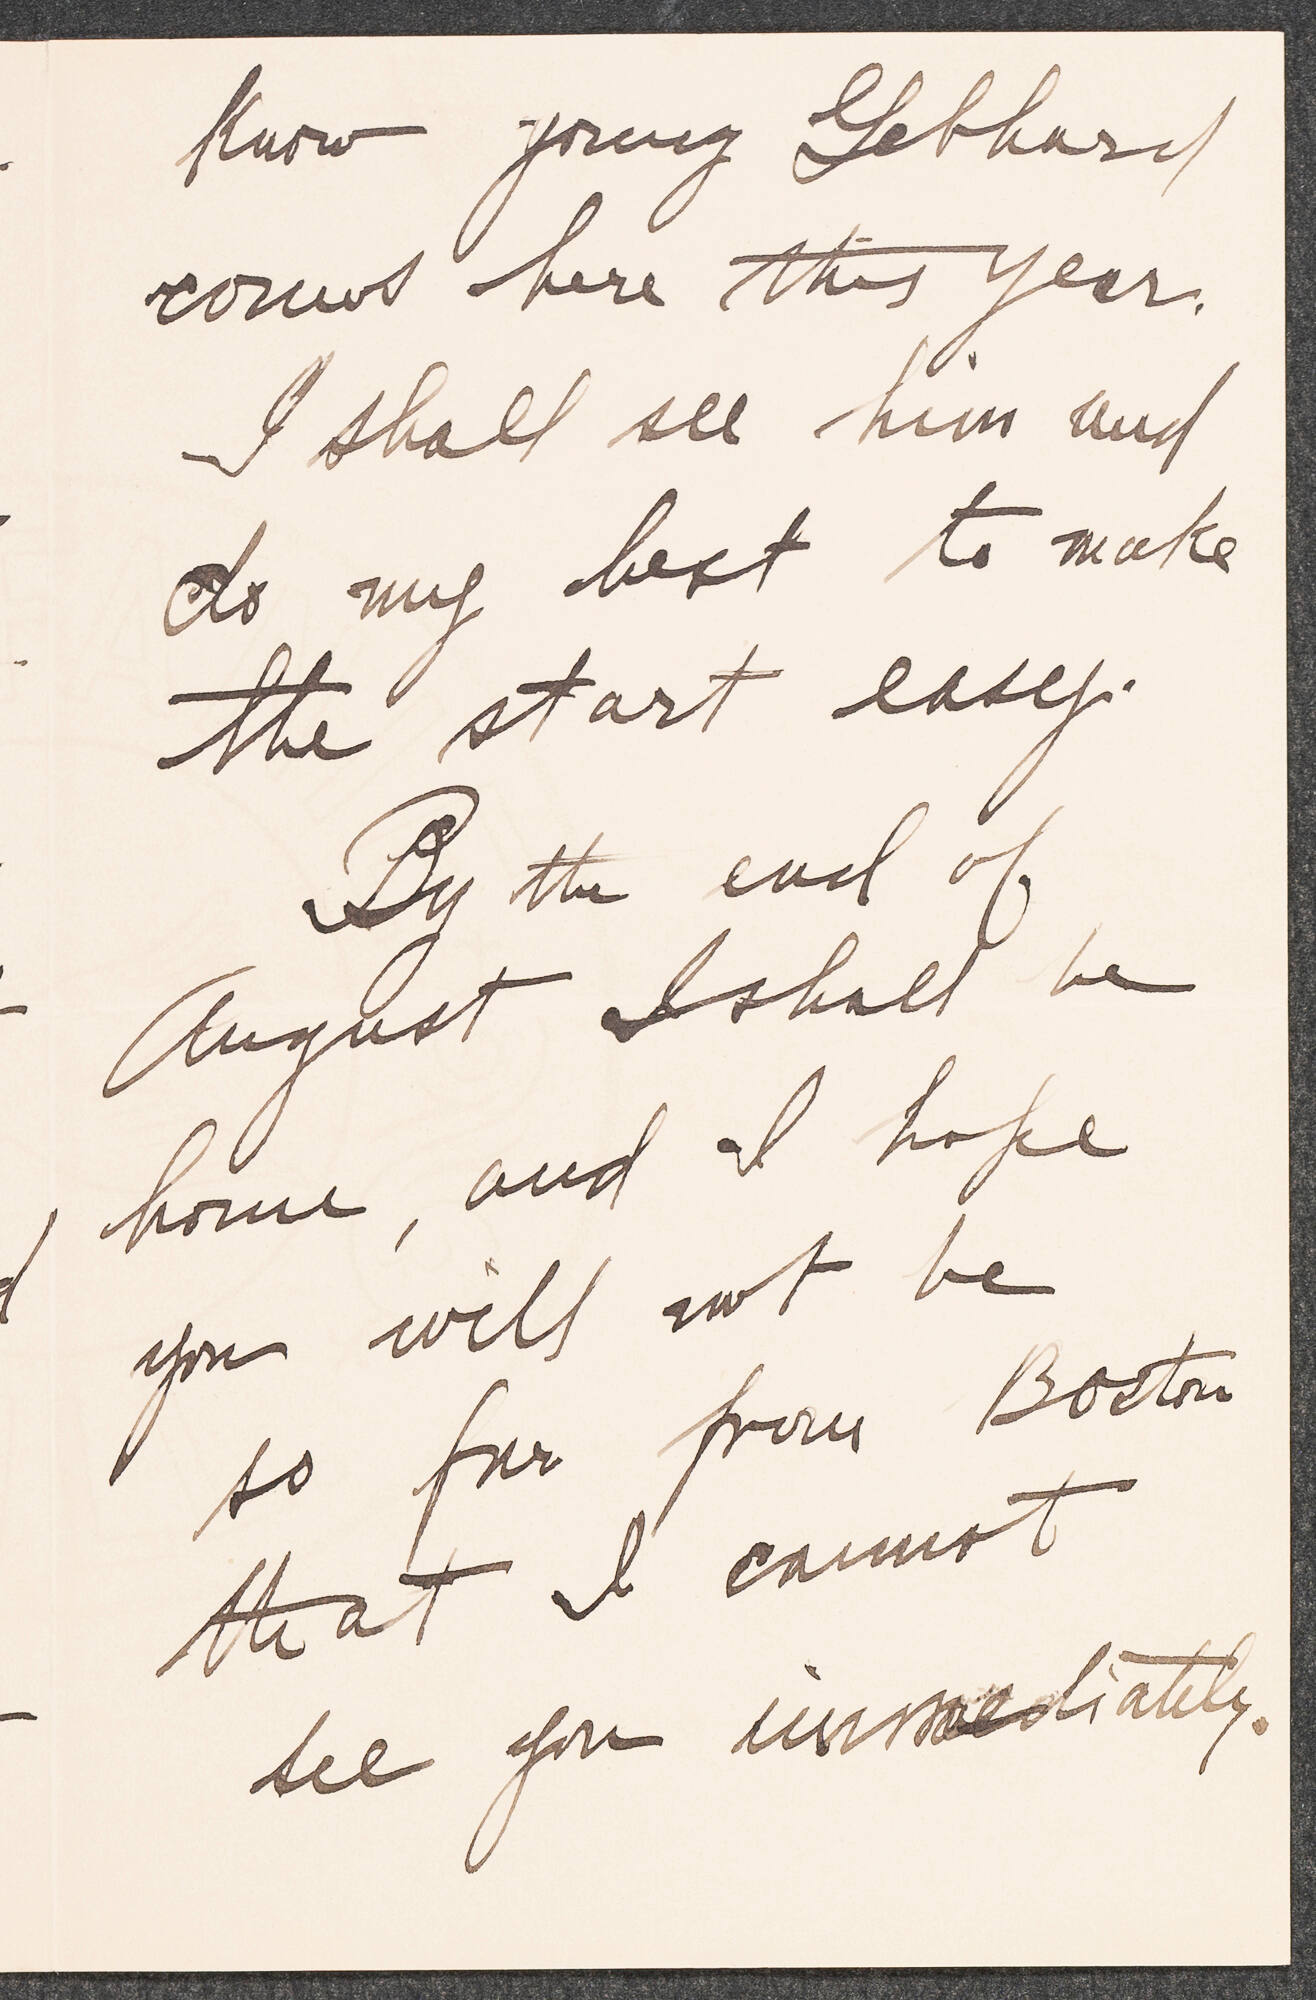 know young Gebhard
comes here this year.
I shall see him and
do my best to make
the start easy.
By the end of
August I shall be
home, and I hope
you will not be
so far from Boston
that I cannot
see you immediately.